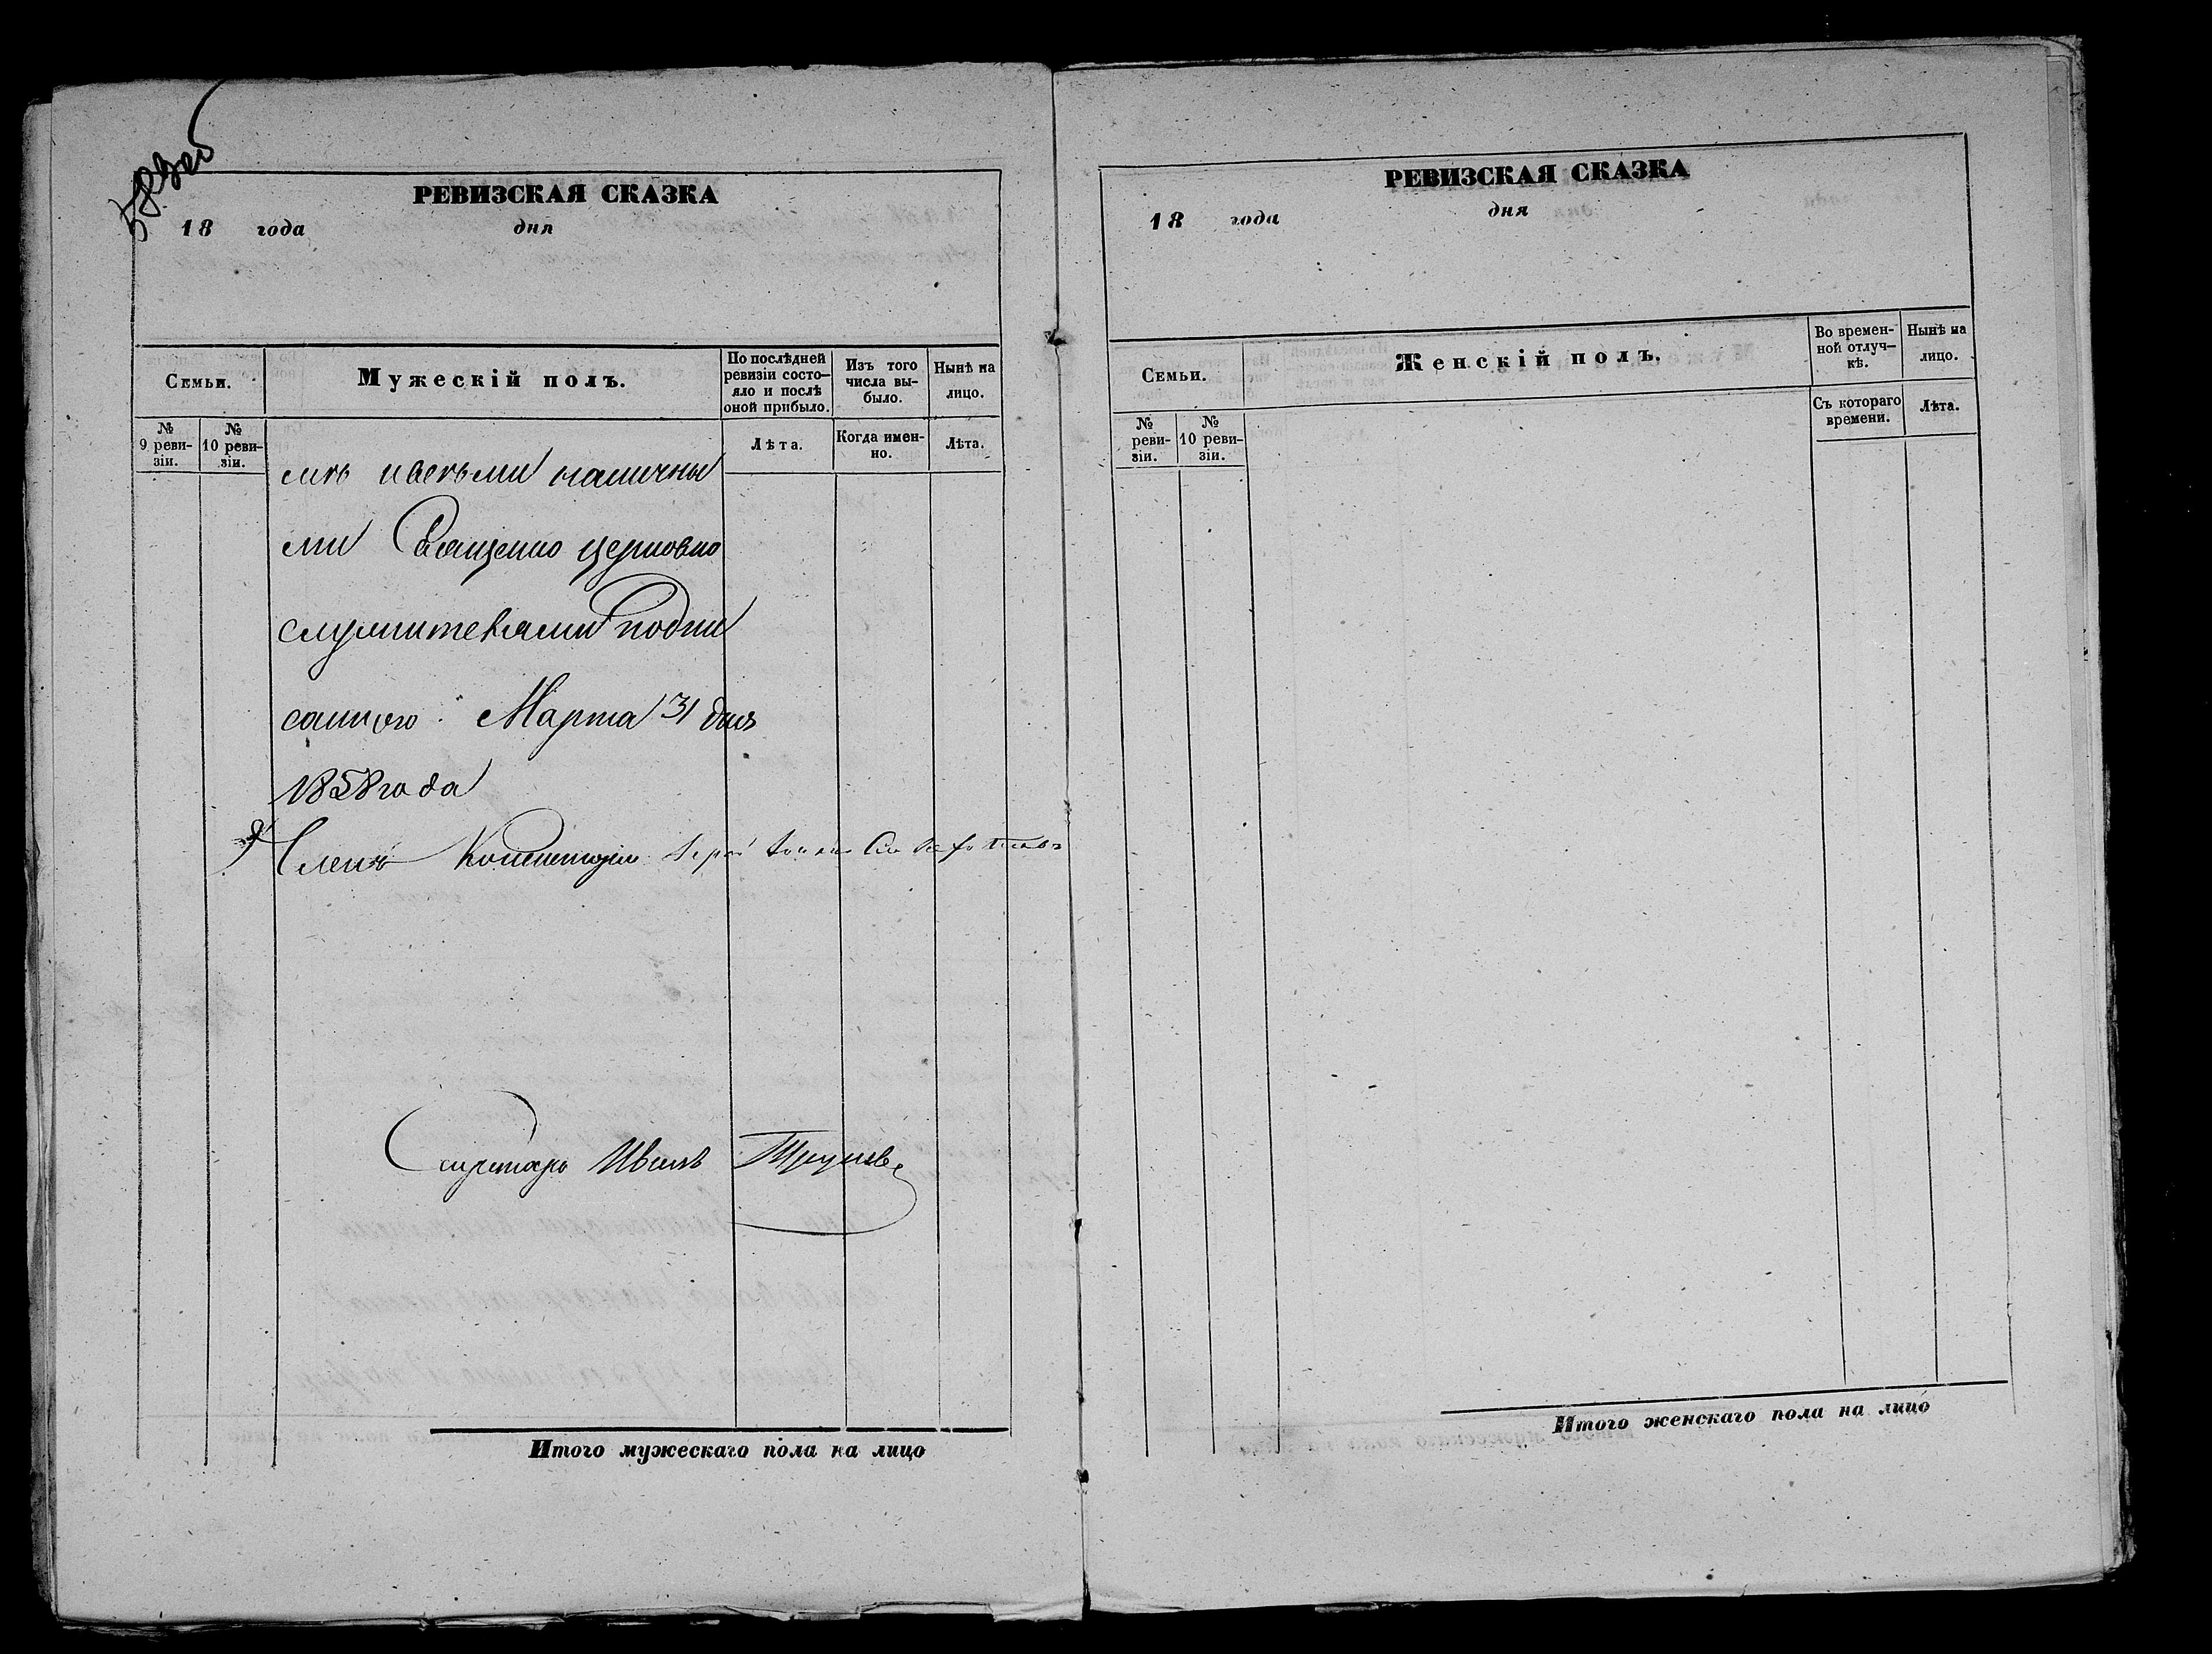 РЕВИЗСКАЯ СКАЗКА
18 года дня
Семьи.
Мужескій полъ.
По послѣдней ревизіи состо-
яло и послѣ
оной прибыло.
Изъ того
числа вы-
было.
Нынѣ на
лицо.
№
9 реви-
зіи.
№
10 реви-
зіи.
Лѣта.
Когда имен-
но.
Лѣта.
наличны
ми Священно церковно
служителями подпи
саннаго Марта 31 дня
1858 года
Членъ Консисторіи
Секретарь Иванъ
Итого мужескаго пола на лицо
РЕВИЗСКАЯ СКАЗКА
18 года дня
Семьи.
Женскій полъ.
Во времен-
ной отлуч-
кѣ.
Нынѣ на
лицо.
№
реви-
зіи.
№
10 реви-
зіи.
Съ котораго
времени.
Лѣта.
Итого женскаго пола на лицо